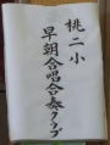 桃二小
早朝合唱合奏クラブ